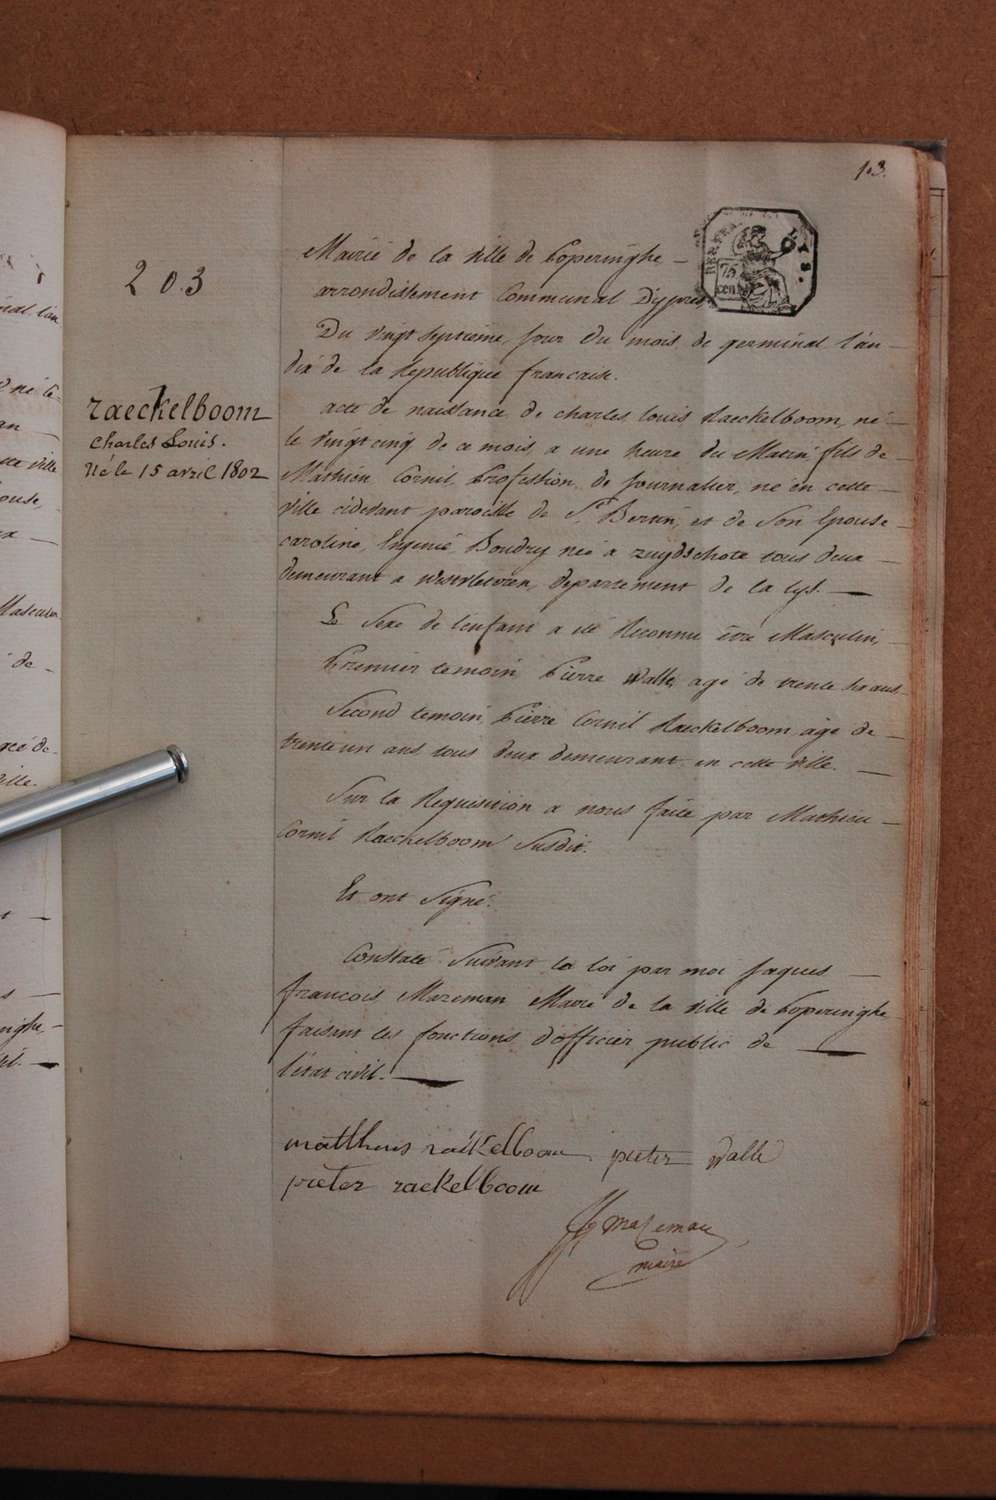 13.
203
Mairie de la Ville de Poperinghe
arrondissement Communal D'ypres
Du vingt septieme jour du mois de germinal l'an
dix de la Republique francaise.
raeckelboom
Charles Louis.
Né le 15 avril 1802
acte de naissance de charles louis Raeckelboom, né
le vingt cinq de ce mois, a une heure du Matin fils de
Mathieu Cornil Profession de journalier, né en cette
ville cidevant paroisse de St. Bertin, et de Son Epouse
caroline Eugenie Boudry née a zuydschote tous deux
demeurant a westvleteren, departement de la Lys.
Le Sexe de l'enfant a été Reconnu être Masculin,
Premier temoin Pierre Walle, agé de trente ans
Second temoin, Pierre Cornil Raeckelboom agé de
trente un ans tous deux demeurant en cette ville.
Sur la Requisition a nous faite par Mathieu
Cornil Raeckelboom Susdit.
Et ont Signé.
Constaté Suivant la loi par moi Jaques
francois Mazeman Maire de la Ville de Poperinghe
faisant les fonctions d'officier public de
l'état civil.
mattheus raékelboom pieter Walle
pieter raekelboom
mazeman
maire